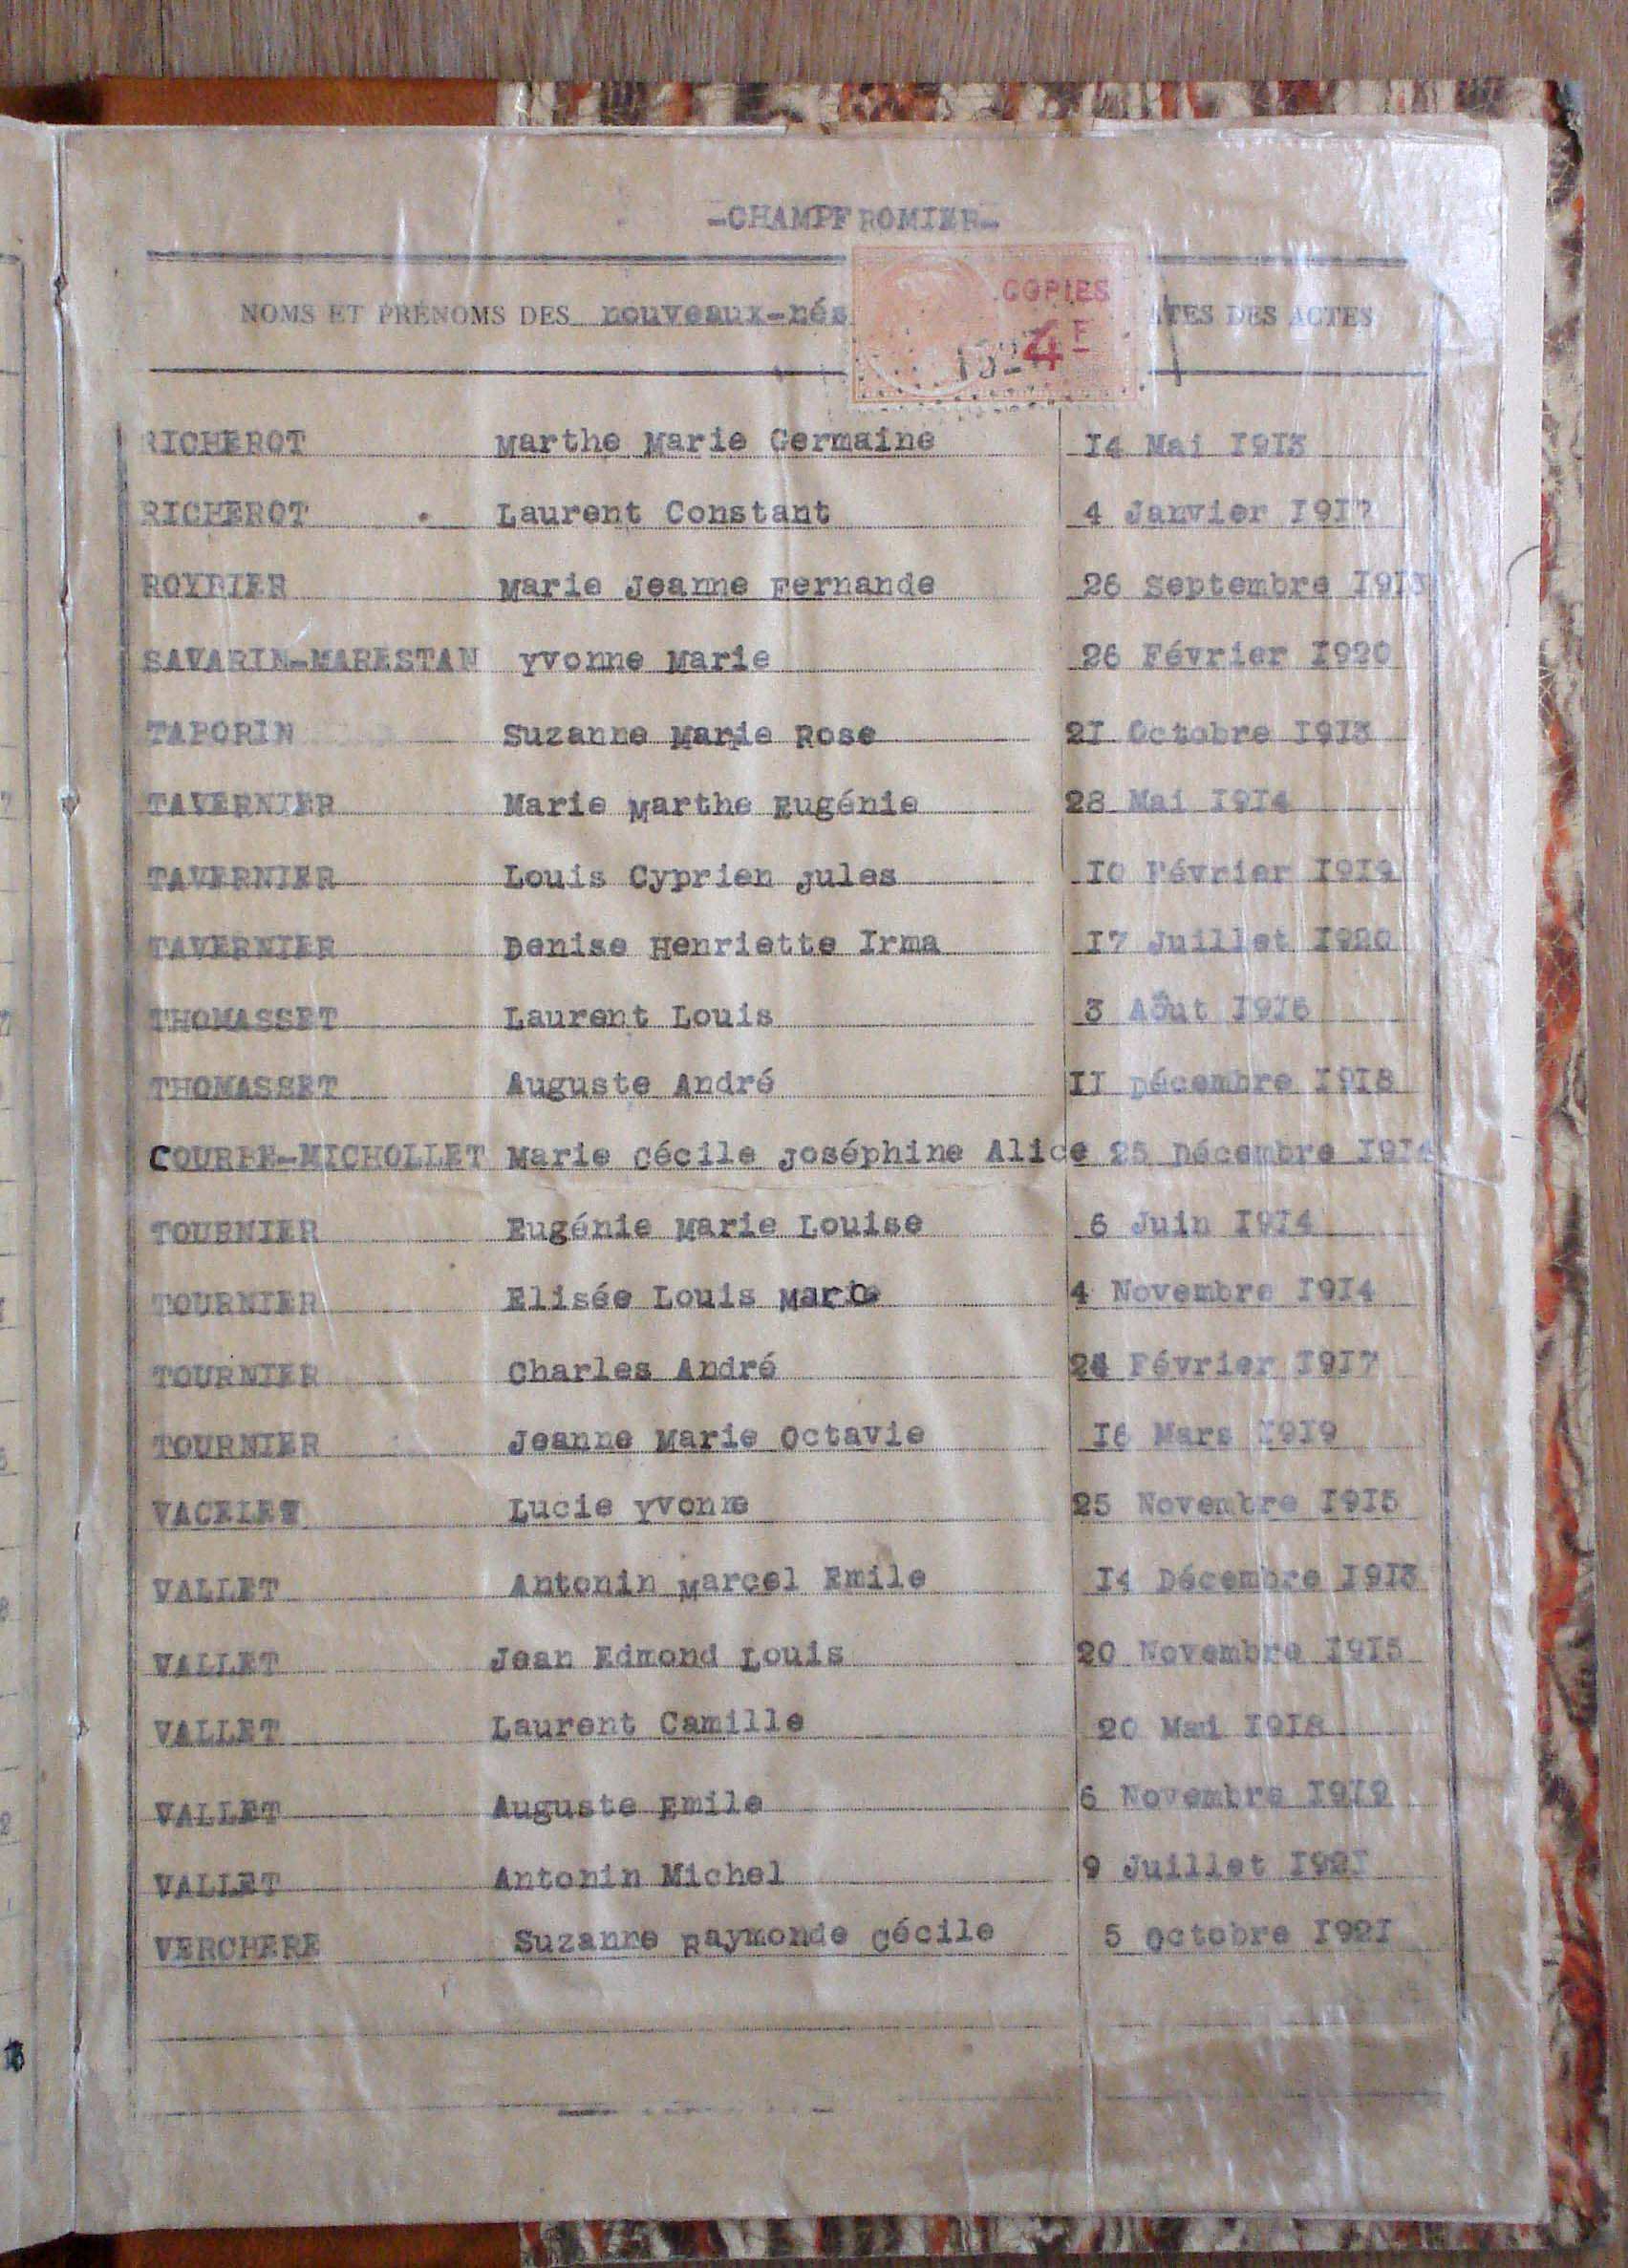 -CHAMPFROMIER-
COPIES
4F
NOMS ET PRÉNOMS DES nouveaux-nés DATES DES ACTES
RICHEROT Marthe Marie Germaine 14 Mai 1913
RICHEROT Laurent Constant 4 Janvier 1917
ROYBIER Marie Jeanne Fernande 26 Septembre 1913
SAVARIN-MARESTAN Yvonne Marie 26 Février 1920
TABORIN Suzanne Marie Rose 21 Octobre 1913
TAVERNIER Marie Marthe Eugénie 28 Mai 1914
TAVERNIER Louis Cyprien Jules 10 Février 1919
TAVERNIER Denise Henriette Irma 17 Juillet 1920
THOMASSET Laurent Louis 3 Aôut
THOMASSET Auguste André 11 Décembre 1918
COURBE-MICHOLLET Marie Cécile Joséphine Alice 25 Décembre
TOURNIER Eugénie Marie Louise 6 Juin 1914
TOURNIER Elisée Louis 4 Novembre 1914
TOURNIER Charles André Février 1917
TOURNIER Jeanne Marie Octavie 16 Mars 1919
Lucie Yvonne 25 Novembre 1915
VALLET Antonin Marcel Emile 14 Décembre 1913
VALLET Jean Edmond Louis 20 Novembre 1915
VALLET Laurent Camille 20 Mai 1918
VALLET Auguste Emile 6 Novembre 1919
VALLET Antonin Michel 9 Juillet 1921
VERCHERE Suzanne Raymonde Cécile 5 Octobre 1921